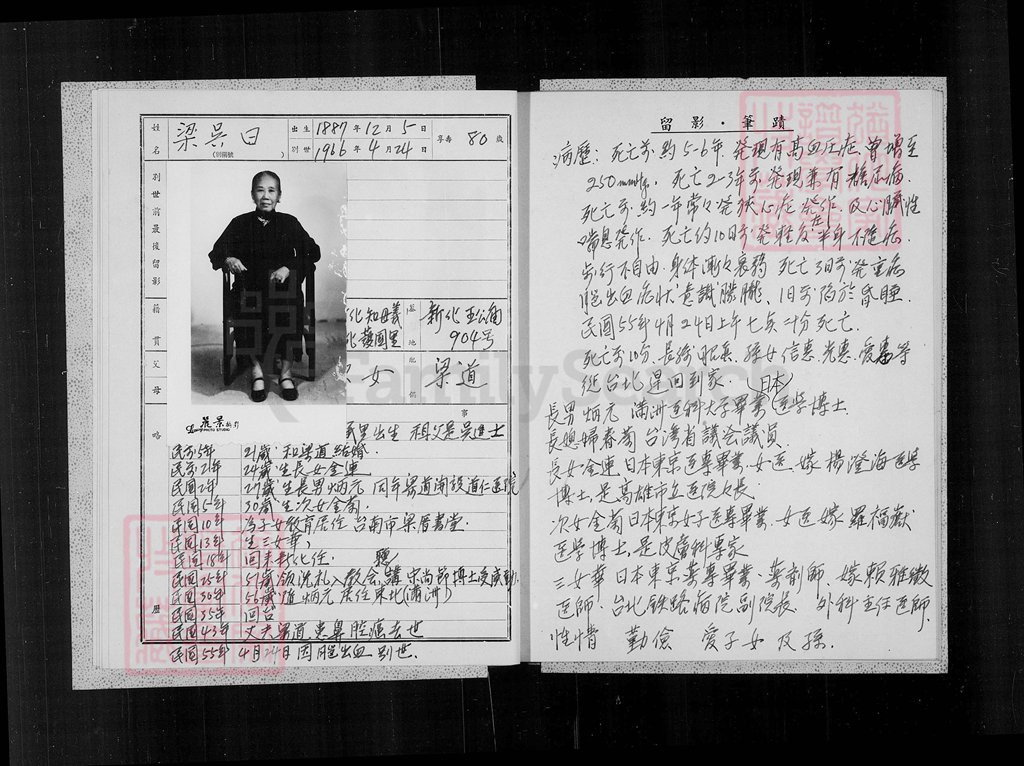 姓名 梁吳日 (別稱號 ) 出生 1887年12月5日 享壽 80歲
別世 1966年4月24日
別世前最後留影
籍貫 化知母義 墓地 新化王公廟
化護國里 904号
父母 女 配偶 梁道
略歷
事
里出生 祖父是吳進士
民前5年 21歲 和梁道結婚.
民前2年 24歲 生長女金連
民國2年 27歲 生長男炳元 同年梁道開設道仁医院
民國5年 30歲 生次女金蘭.
民國10年 為子女教育居住 台南市梁厝書堂.
民國13年 生三女華,
民國18年 回來新化住. 聽
民國26年 51歲領洗礼入教会,講宋尚節博士受感動.
民國30年 56歲隨炳元居住東北(滿洲)
民國35年 回台
民國43年 丈夫梁道患鼻腔癌去世
民國55年4月24日因腦出血別世.
留影・筆蹟
病歷: 死亡前約5-6年 発現有高血圧症,曾增至
250mmHg. 死亡2-3年前発現兼有糖尿病.
死亡前約一年常々発狭心症発作,及心臟性
喘息発作. 死亡約10日前発左半身不遂病.
步行不自由.身体漸々衰弱 死亡3日前発重病
腦出血症狀 意識朦朧、1日前陷於昏睡.
民國55年4月24日上午七点二十分死亡.
死亡前10分.長孫昭兵 孫女信惠 光惠 愛惠等
從台北趕回到家. 日本
長男炳元 滿洲医科大学畢業 医学博士.
長媳婦春菊 台湾省議会議員.
長女金連 日本東京医專畢業.女医.嫁楊澄海医学
博士,是高雄市立医院々長.
次女金蘭日本東京女子医專畢業.女医嫁羅福嶽
医学博士,是皮膚科專家
三女華 日本東京薬專畢業、薬剤師、嫁賴雅徽
医師.台北鉄路病院副院長、外科主任医師.
性情 勤儉 愛子女及孫.
FamilySearch